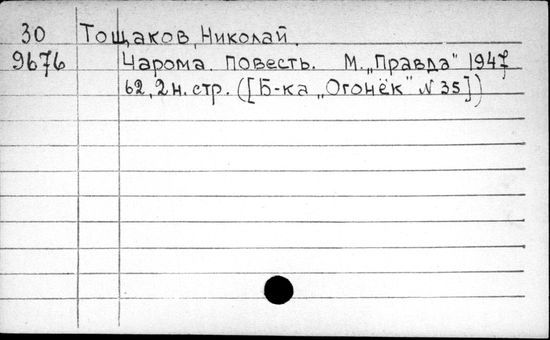 30 Тощаков, Николай.
9676 Чарома. Повесть. М. „Правда" 1947
62, 2 н. стр. ([Б-ка „Огонёк" N 35])